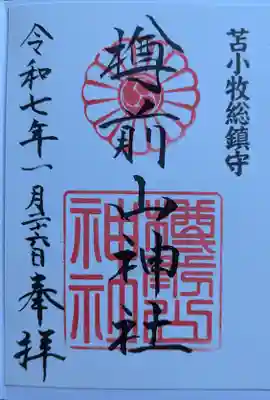 苫小牧総鎮守
樽前山神社
令和七年一月二十六日奉拝
樽前山神社